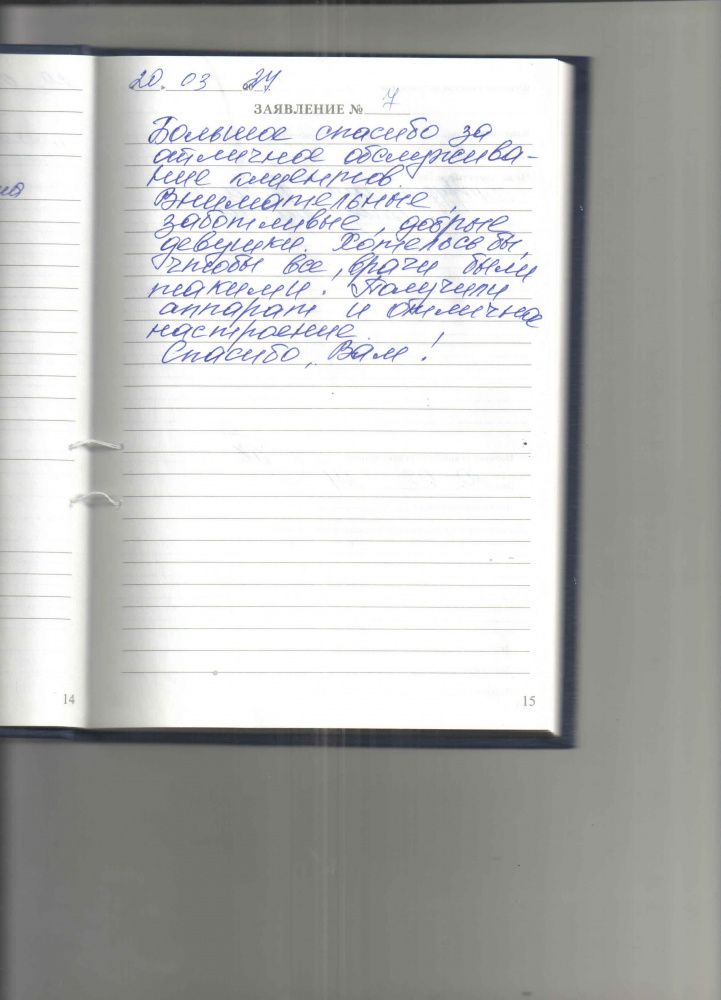 20. 03 24 г.
ЗАЯВЛЕНИЕ № 7
Большое спасибо за
отличное обслужива-
ние клиентов.
Внимательные,
заботливые, добрые
девушки. Хотелось бы,
чтобы все, врачи были
такими. Получили
аппарат и отличное
настроение.
Спасибо, Вам!
14
15